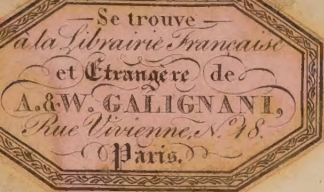 Se trouve
à la Librairie Française
et Etrangère de
A. & W. GALIGNANI,
Rue Vivienne, N. 18.
Paris.